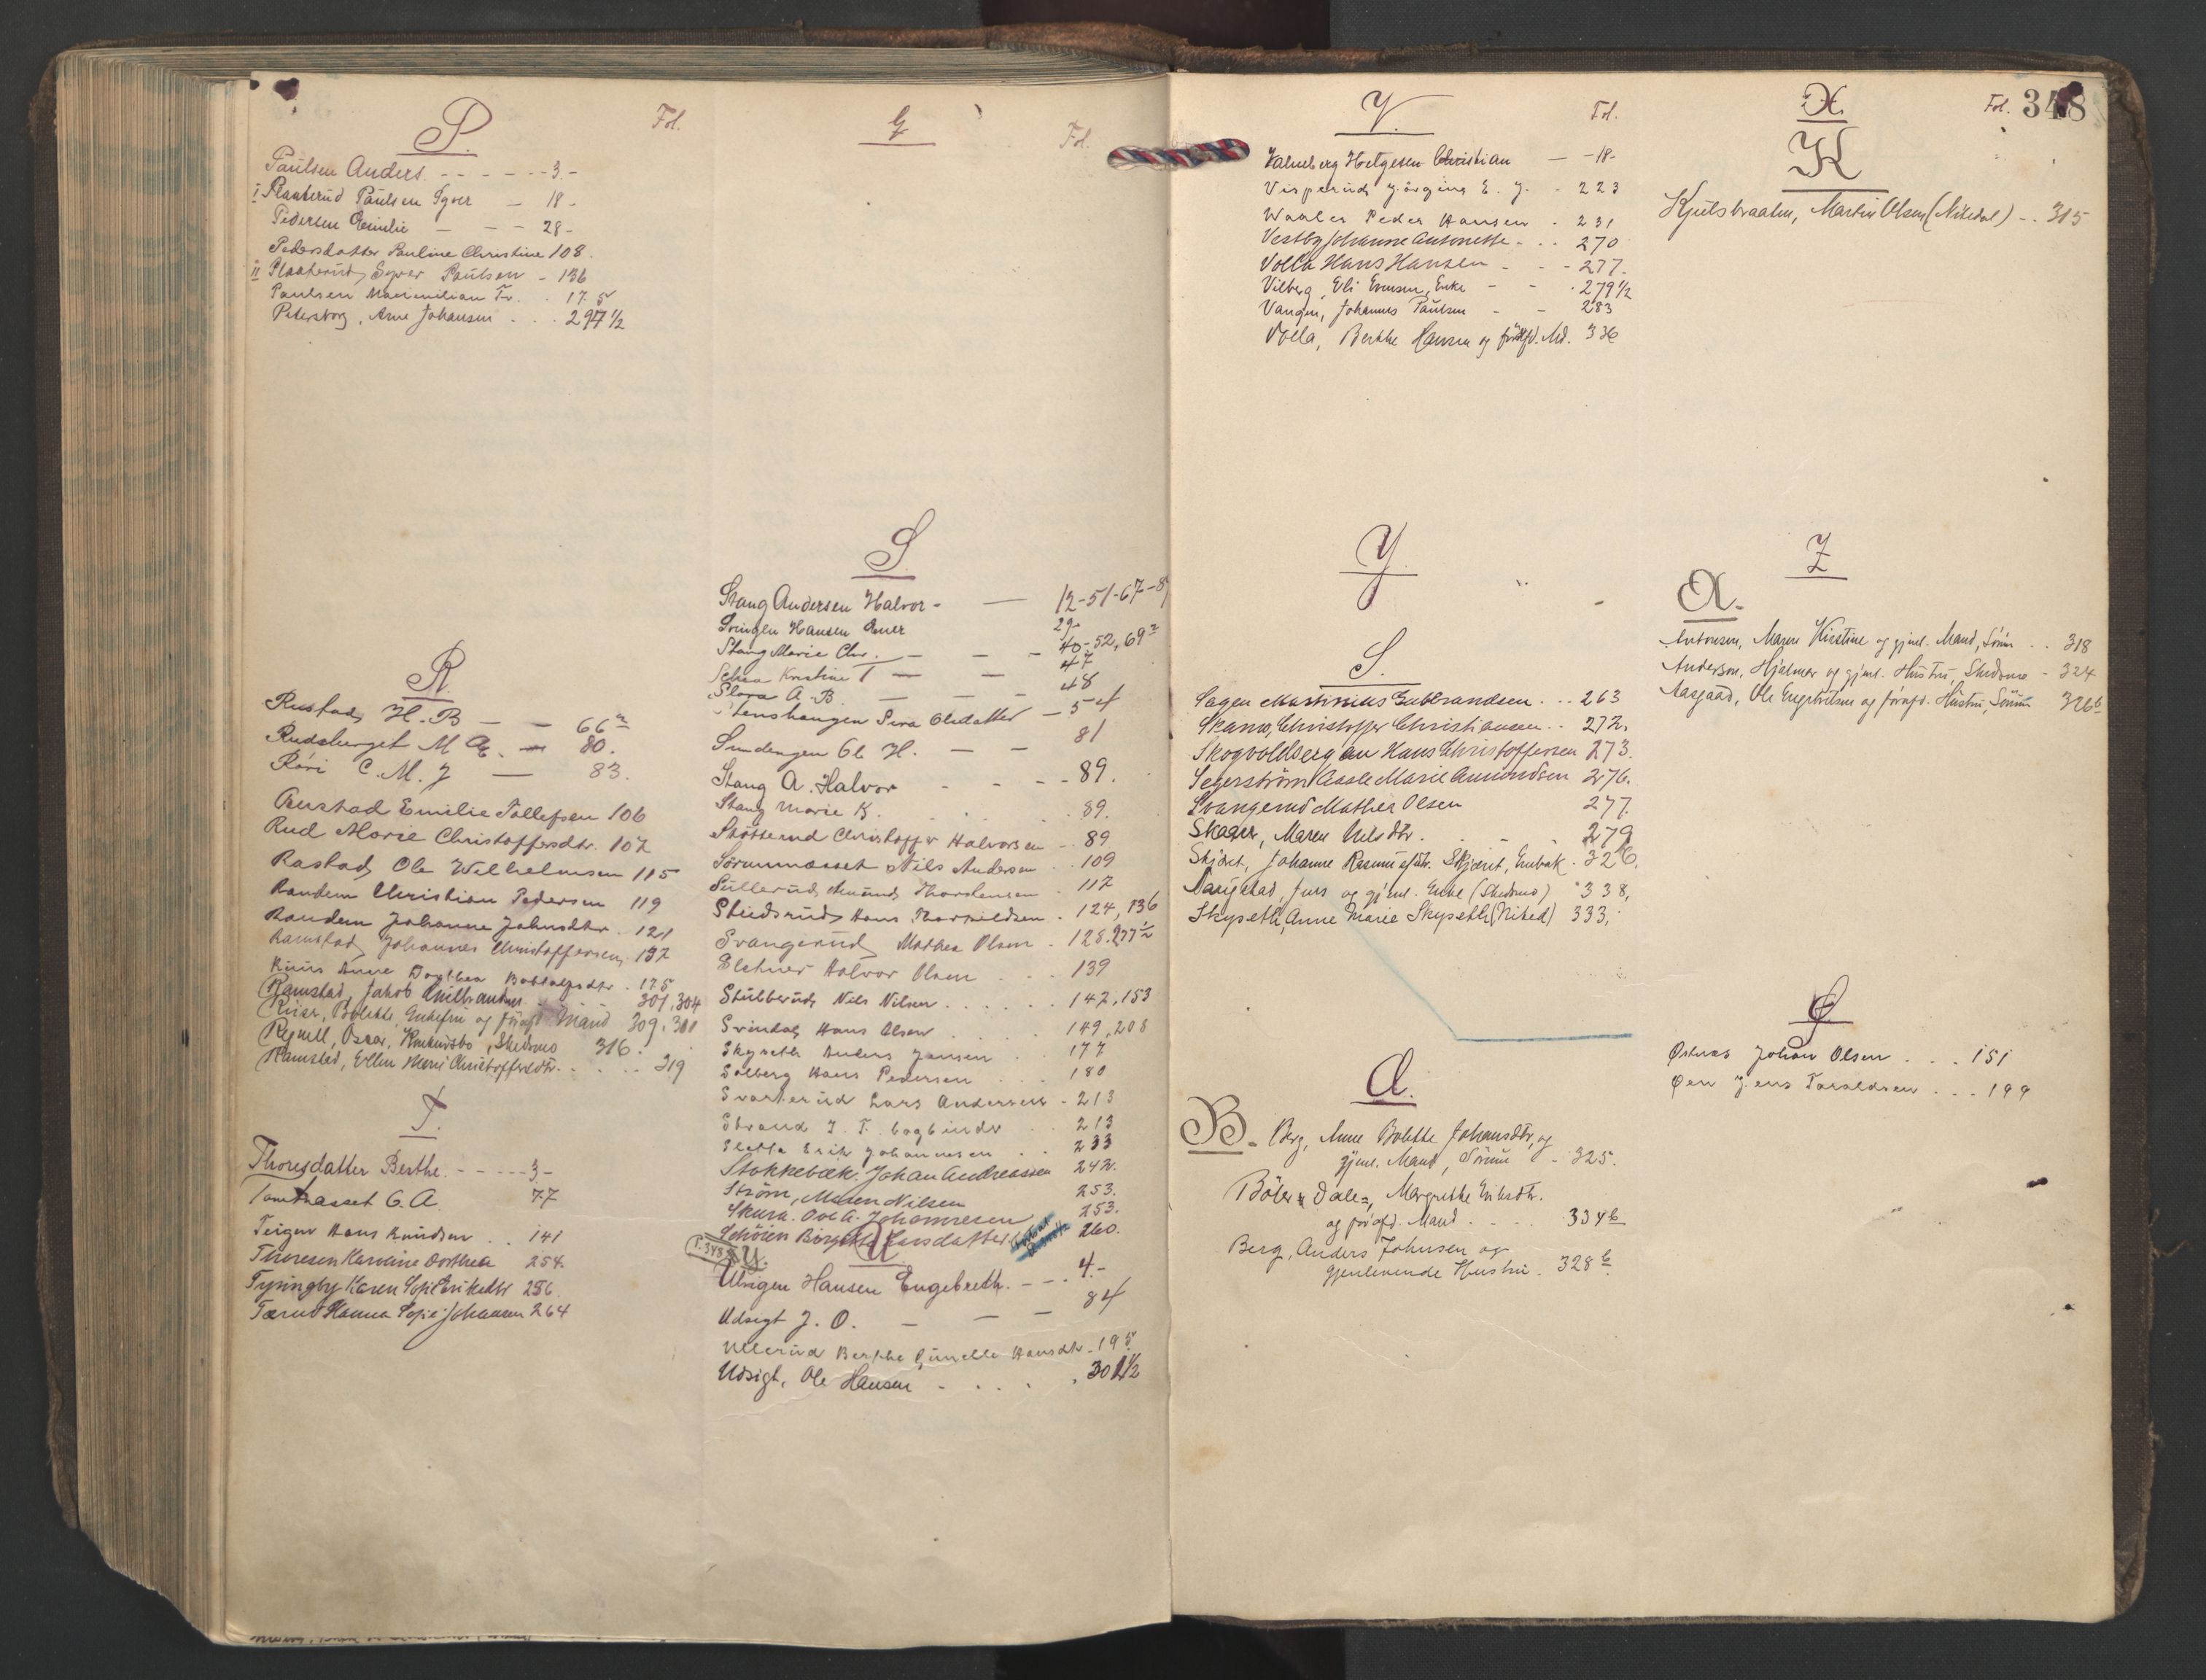 P. Fol.
Paulsen Anders - - - - - - 3.-
I Plaaterud Paulsen Syver — 18 -
Pedersen Emilie — - - 28 -
Pedersdatter Pauline Christine 108.
II Plaaterud Syver Paulsen - 136
Paulsen Maximilian Fr. . 175
Petersborg, Arne Johansen . . . 297 1/2
R.
Rustad, H. B — — 66
Rudsberget M — 80.
Röri C. M. J — 83.
Rustad Emilie Tollefsen 106
Rud Marie Christoffersdtr. 107
Rastad Ole Wilhelmsen 115
Randem Christian Pedersen 119
Randem Johanne Johnsdtr. 121
Ramstad Johannes Christoffersen, 137
Anne Dorthea . 175
Ramstad, Jakob Gulbrandsen 301, 304
Riiser, Bolette, Gaardfru og föraf. Mand 309, 311
Oscar, Skedsmo 316.
Ramstad, Ellen Marie Christoffersdtr. . . . . 319
T.
Thoresdatter Berthe. - - - - - 3 -
Tomtnasset G. A. 77
Teigen Hans Knudsen . . 141
Thoresen Karoline Dorthea 254.
Tysingby Karen Sofie Eriksdtr 256.
Tærud Hanna Sofie Johansen 264
Q Fol.
S.
Stang Andersen Halvor - — 12-51-67-8
Hansen 29-
Stang Marie Chr. — — - 40-52, 69
Kristine T — — 47
Flora A. B. — — - 48
Olsdatter - 54
Sundengen Ol. H. — — 81
Stang A. Halvor - - - - 89.
Stang Marie K. . . 89.
Christoffer Halvorsen - 89
Sörumnæsset Nils Andersen . 109
Süllerud, Amund Thorstensen . 117
Skedsrud, Hans Thorvildsen . 124, 136
Svangerud Mathea Olsen . 128. 277 1/2
Halvor Olsen . . . 139
Stubberud Nils Nilsen . . . . . 147, 153
Svindal Hans Olsen . . 149, 208
Skyseth Anders Jansen . . 177
Solberg Hans Pedersen . . . . 180
Svarterud Lars Andersen - 213
Strand J. T. bogbinder . . 213
Sletta Erik Johannesen . . 233
Stokkebæk. Johan Andreassen 242.
Ström, Maren Nilsen 253.
Skura. Ove A. Johannesen 253.
Schöien Birgitte Larsdatter 260.
U
Ubrigen Hansen Engebreth. - - . 4.-
Udsigt J. O. — — — 84
Ullerud Berthe Gunelle Hansdtr. 195
Udsigt, Ole Hansen - . . . . 301 1/2
V. Fol.
Valneberg Helgesen Christian — - 18 -
Visperud Jörgine E. J. - 223
Waaler Peder Hansen . 231
Vestby Johanne Antonette . . . 270
Volla Hans Hansen - - - 277.
Vilberg, Eli Evensen, Enke - - . 279 1/2
Vangen, Johannes Paulsen - - 283
Volla, Berthe Hansen og föraf. Md. 336
Y
S.
Sagen Martinius Gulbrandsen . . . 263
Skams, Christoffer Christiansen . . 272.
Skogvoldsbergen Hans Christoffersen 273.
Segerström Aasle Marie Amundsen 276.
Svangerud Mathea Olsen 277.
Skager, Maren Nilsdtr. . . . 279
Skjæret, Johanne Rasmusdtr. Skjæret, Enebak . 326.
Jens og gjenl. Enke (Skedsmo) 338,
Skyseth, Anne Marie Skyseth (Nited) 333,
Q.
B. Berg, Anne Bolette Johansdtr, og
gjenl. Mand, Sörum - 325.
Böler, Dale, Margrethe Eriksdtr.
og föraf. Mand . - - . 334 b
Berg, Anders Johnsen og
gjenlevende Hustru . 328 b
X. Fol. 348
K
Kjulsbraaten, Martin Olsen (Nitedal) - . 315
Z
A.
Antonsen, Maren Kirstine og gjenl. Mand, Sörum . . 318
Anderson, Hjalmar og gjenl. Hustru, Skedsmo - 324
Aasgaard, Ole Engebretsen og föraf. Hustru, Sörum 326 b
Ø
Østnæs Johan Olsen . . . . 151
Øen Jens Taraldsen . . . 199